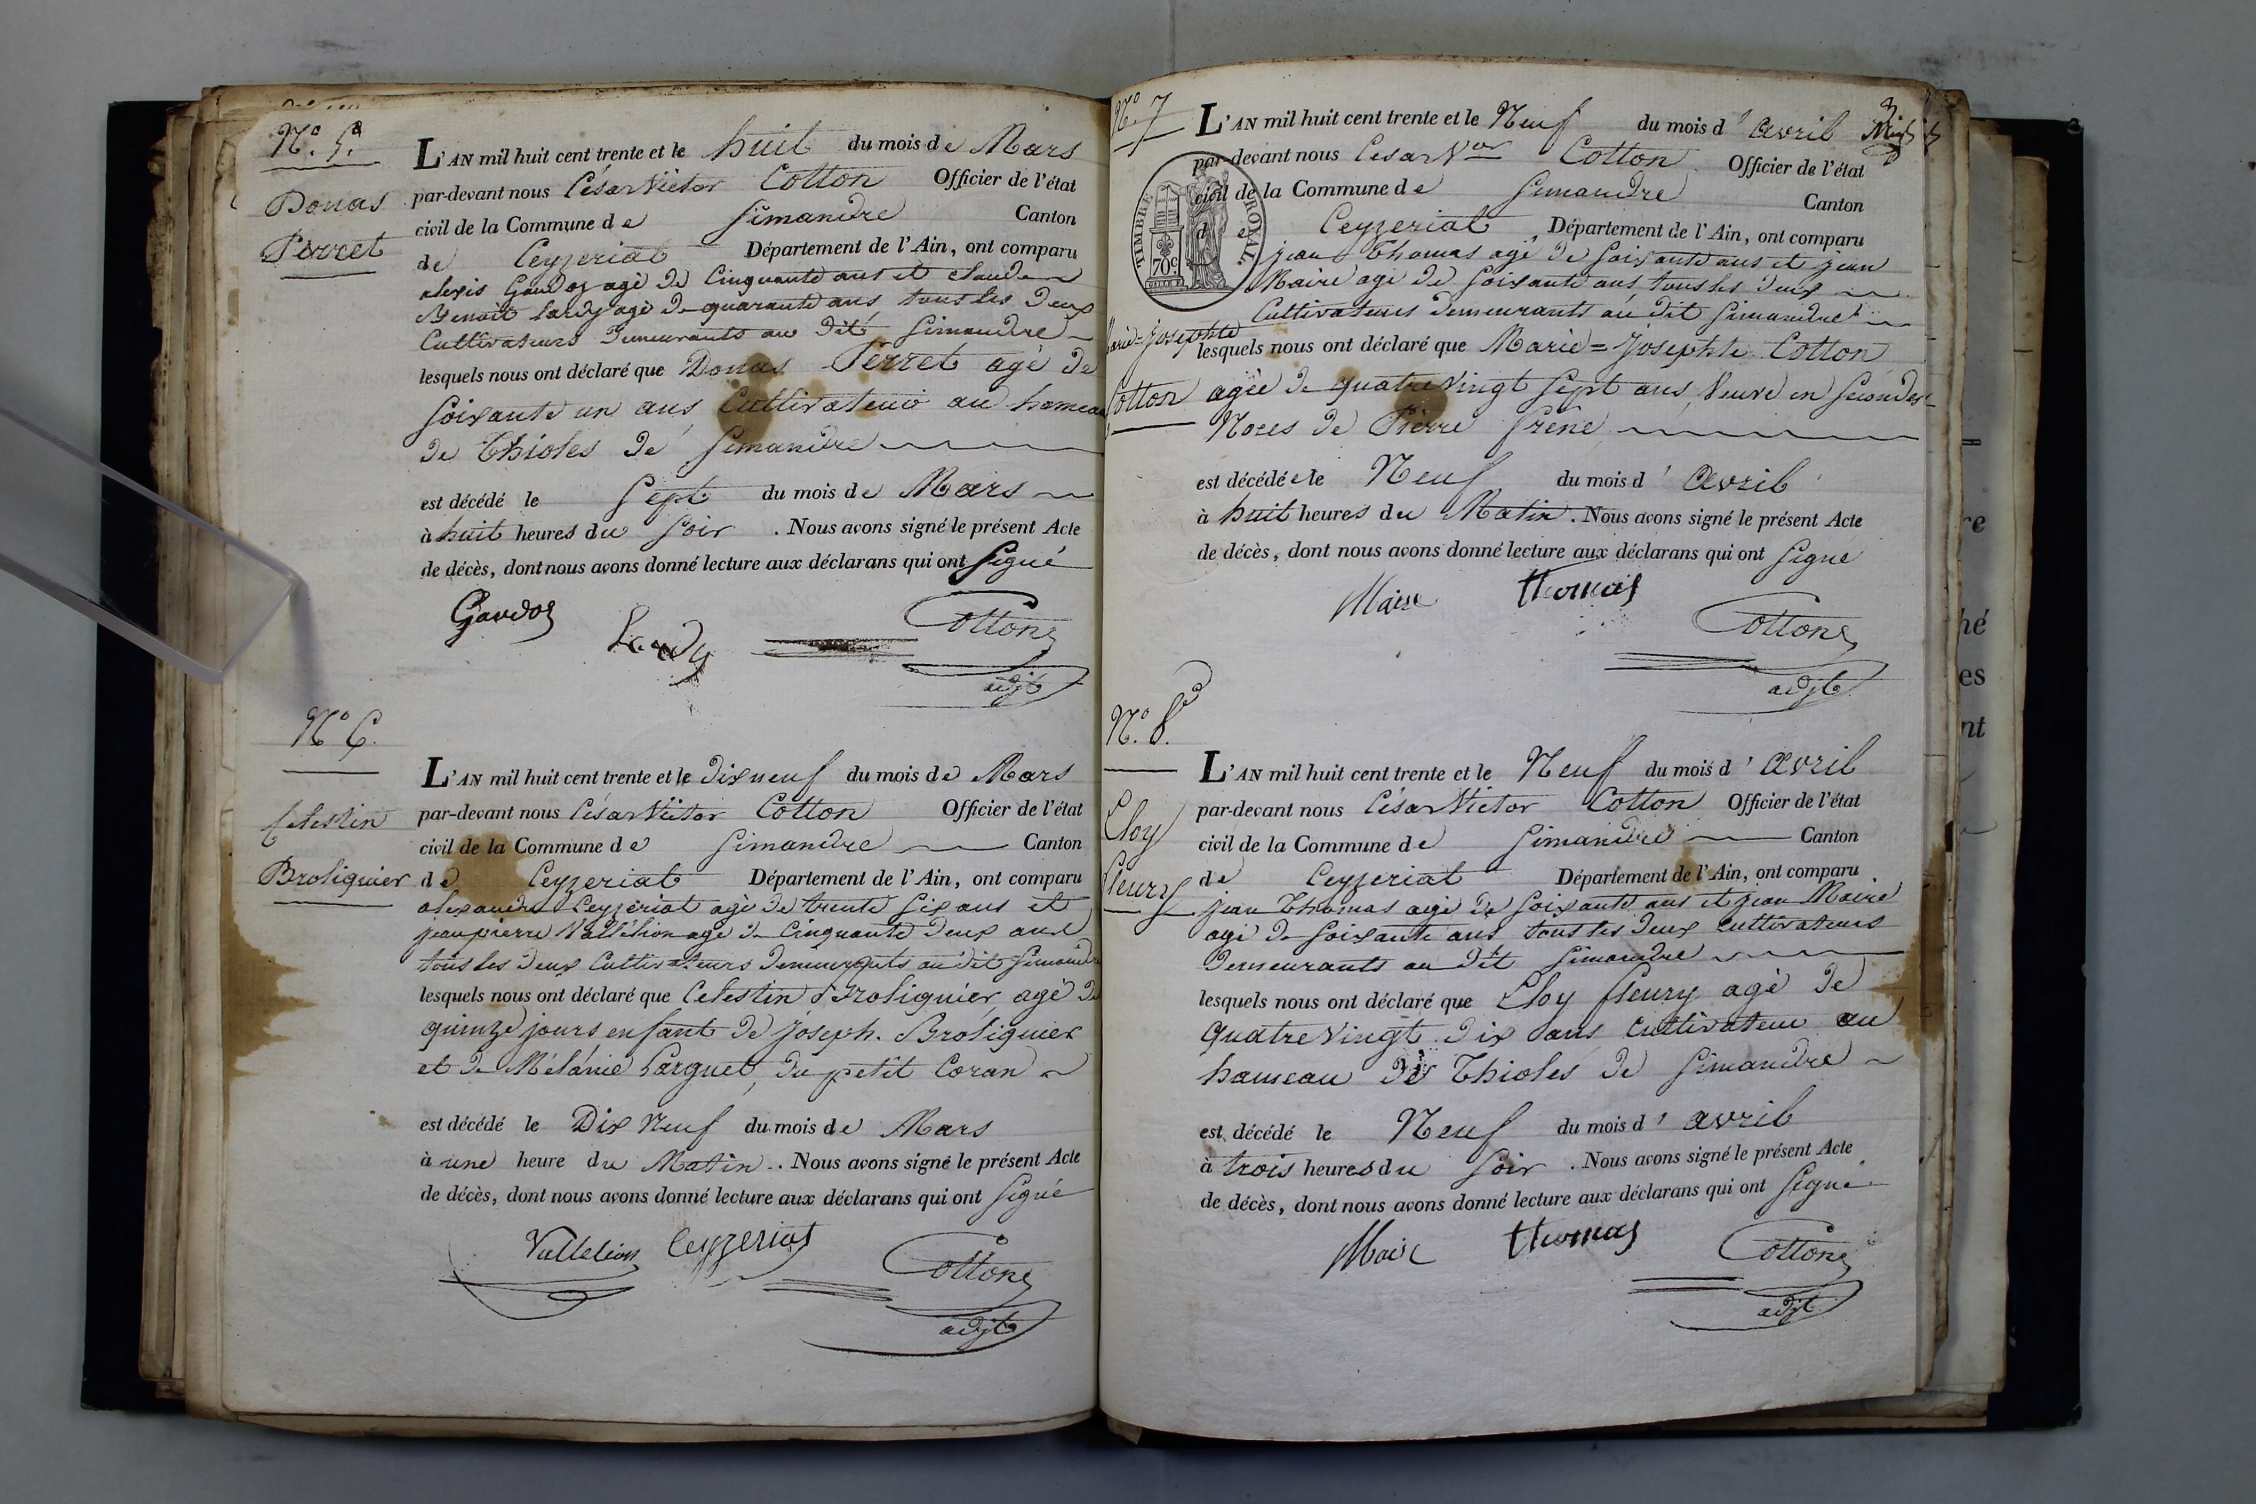 N.° 5.
Donas
Perret
L'AN mil huit cent trente et le huit du mois de Mars
par-devant nous César Victor Cotton Officier de l'état
civil de la Commune de Simandre Canton
de Ceyzeriat Département de l'Ain, ont comparu
alexis Gaudoz agé de Cinquante ans et claude
Benoit Lardy agé de quarante ans tous les deux
Cultivateurs Demeurants au dit Simandre
lesquels nous ont déclaré que Donas Perret agé de
soixante un ans, Cultivateur au hameau
de Thioles de Simandre
est décédé le Sept du mois de Mars
à huit heures du Soir . Nous avons signé le présent Acte
de décès, dont nous avons donné lecture aux déclarans qui ont Signé
Gaudoz
Lardy
Cotton
adjt
N° 6.
Celestin
Broliquier
L'AN mil huit cent trente et le dix neuf du mois de Mars
par-devant nous César Victor Cotton Officier de l'état
civil de la Commune de Simandre Canton
de Ceyzeriat Département de l'Ain, ont comparu
alexandre Ceyzeriat agé de trente six ans et
jean pierre Vallelion agé de Cinquante deux ans
tous les deux Cultivateurs Demeurants au dit Simandre
lesquels nous ont déclaré que Celestin Broliquier, agé de
quinze jours enfant de joseph. Broliquier
et de Mélanie Larguet, du petit Coran
est décédé le Dix Neuf du mois de Mars
à une heure du Matin . Nous avons signé le présent Acte
de décès, dont nous avons donné lecture aux déclarans qui ont Signé
Vallelion Ceyzeriat
Cotton
adjt
N.° 7
Marie=Josephte
Cotton
TIMBRE ROYAL
70c
L'AN mil huit cent trente et le Neuf du mois d'avril
par-devant nous César Vor Cotton Officier de l'état
civil de la Commune de Simandre Canton
de Ceyzeriat Département de l'Ain, ont comparu
jean Thomas agé de soixante ans et jean
Maire agé de soixante ans tous les deux
Cultivateurs demeurants au dit Simandre
lesquels nous ont déclaré que Marie=Josephte Cotton
agée de quatre vingt sept ans, Veuve en secondes
Noces de Pierre Frêne
est décédée le Neuf du mois d'avril
à huit heures du Matin . Nous avons signé le présent Acte
de décès, dont nous avons donné lecture aux déclarans qui ont Signé
Maire thomas
Cotton
adjt
N.° 8.
Eloy
fleury
L'AN mil huit cent trente et le Neuf du mois d'avril
par-devant nous César Victor Cotton Officier de l'état
civil de la Commune de Simandre Canton
de Ceyzeriat Département de l'Ain, ont comparu
jean Thomas agé de soixante ans et jean Maire
agé de soixante ans tous les deux cultivateurs
Demeurants au dit Simandre
lesquels nous ont déclaré que Eloy fleury agé de
quatre vingt dix ans cultivateur au
hameau de Thioles de Simandre
est décédé le Neuf du mois d'avril
à trois heures du Soir . Nous avons signé le présent Acte
de décès, dont nous avons donné lecture aux déclarans qui ont Signé
Maire thomas
Cotton
adjt